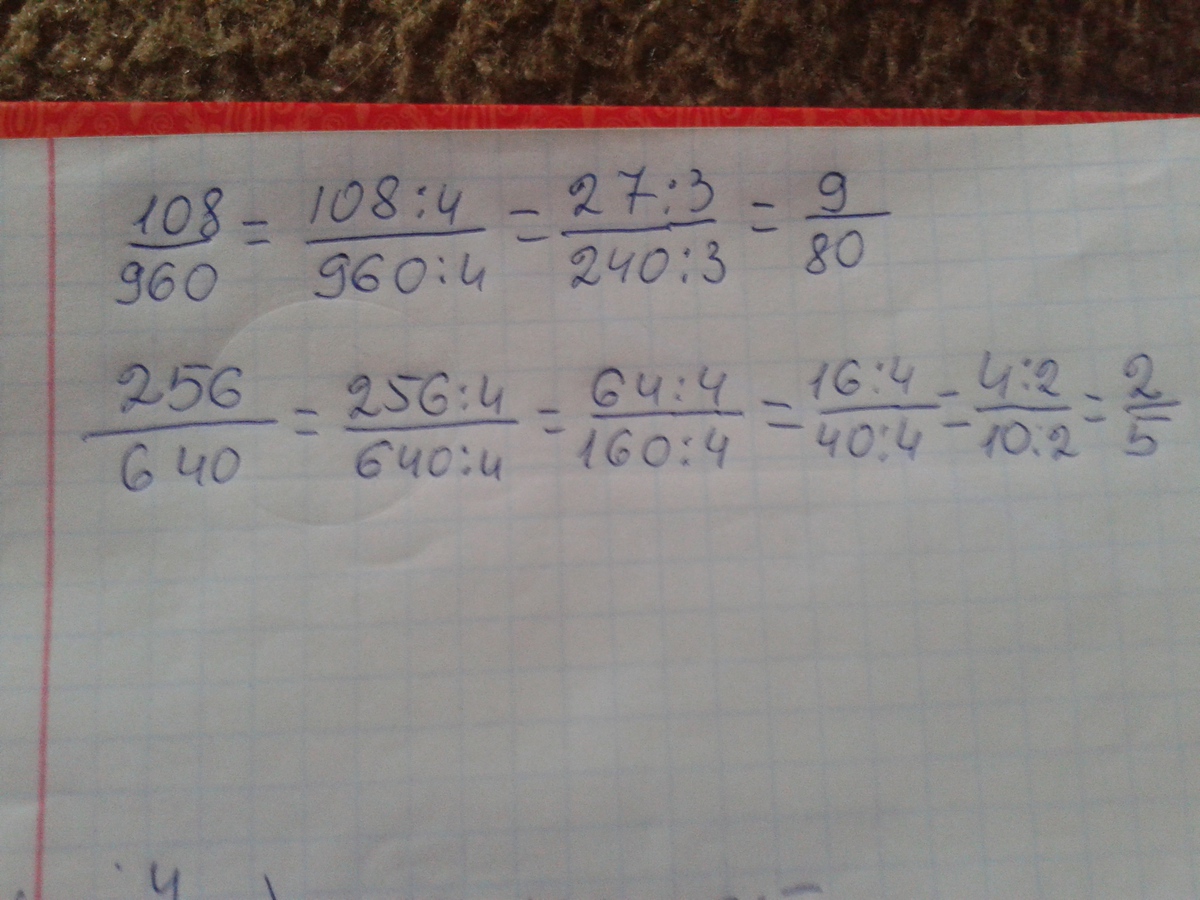 108/960 = 108:4/960:4 = 27:3/240:3 = 9/80
256/640 = 256:4/640:4 = 64:4/160:4 = 16:4/40:4 = 4:2/10:2 = 2/5
4